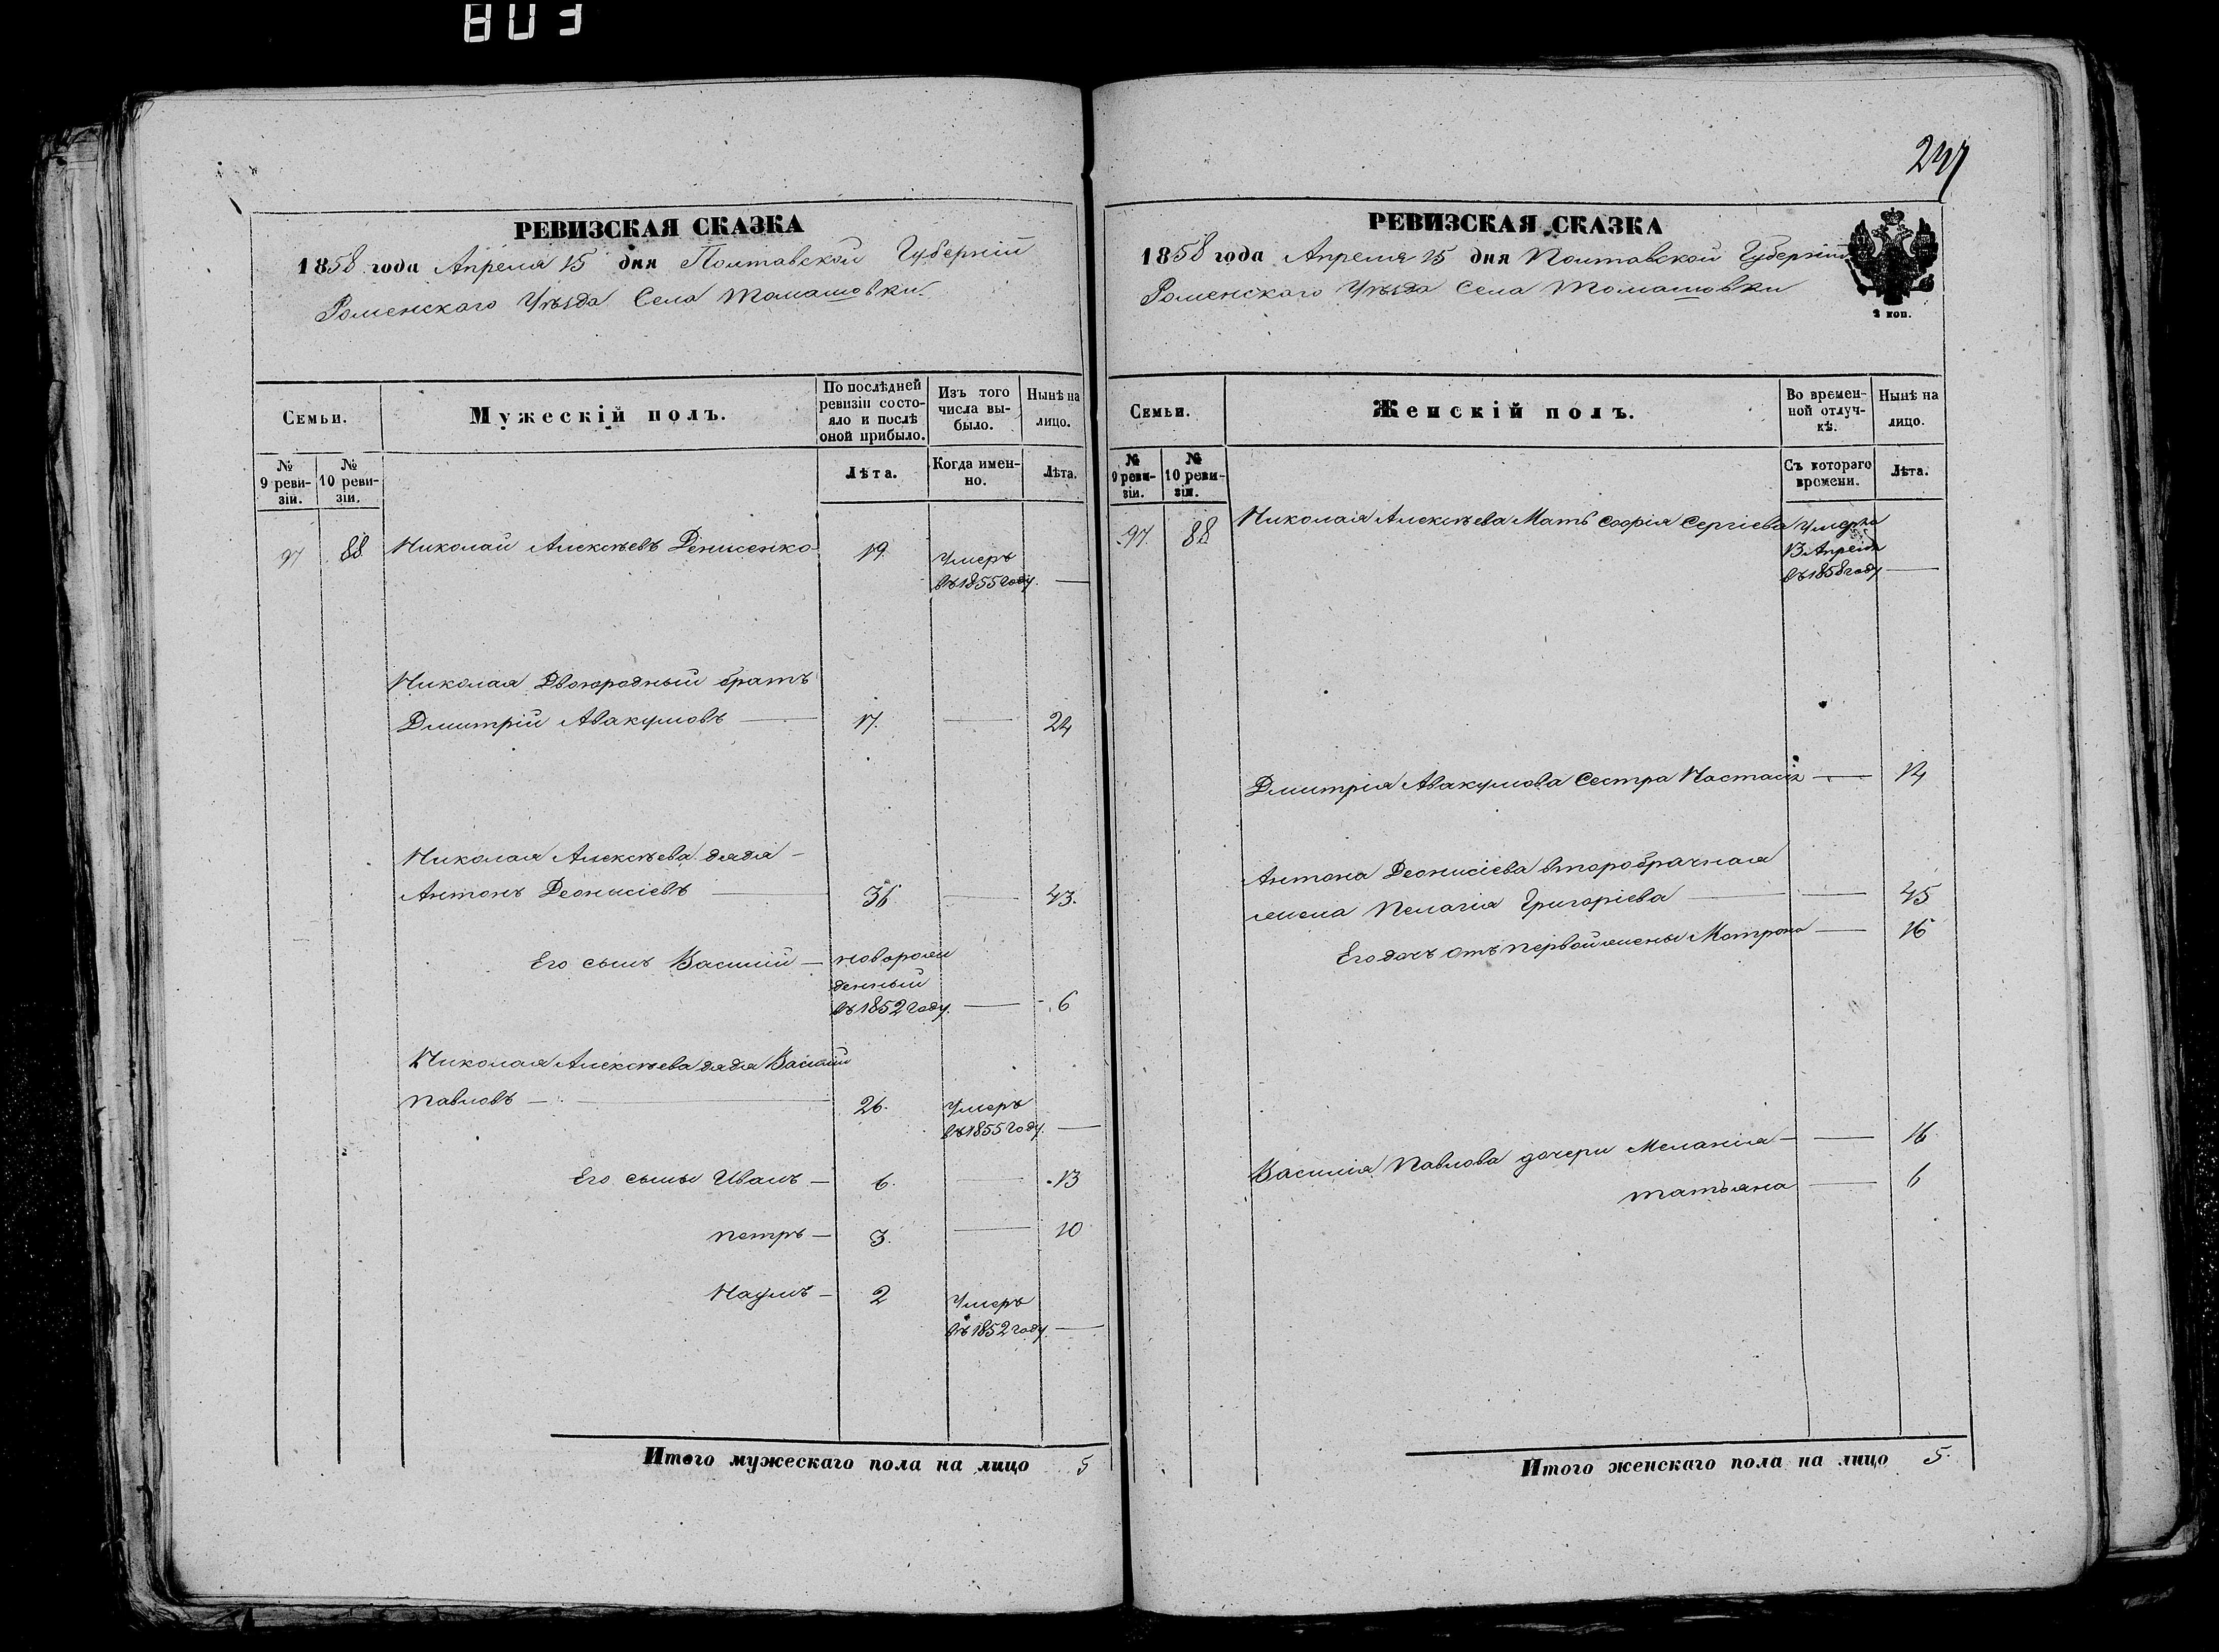 803
247
РЕВИЗСКАЯ СКАЗКА
1858 года Апреля 15 дня Полтавской Губерніи
Роменского Уѣзда Села Томашовки
Семьи.
Мужескій полъ.
По послѣдней ревизіи состояло и послѣ оной прибыло.
Изъ того числа выбыло.
Нынѣ на лицо.
№ 9 ревизіи.
№ 10 ревизіи.
Лѣта.
Когда именно.
Лѣта.
97 88 Николай Алексѣевъ Денисенко 19. Умеръ
въ 1855 году. —
Николая Двоюродный братъ
Дмитрій Авакумовъ — 17. — 24
Николая Алексѣева дядя —
Антонъ Деонисіевъ — 36 — 43.
Его сынъ Василій — новорож
денный
въ 1852 году. — 6
Николая Алексѣева дядя Василій
Павловъ — 26. Умеръ
въ 1855 году. —
Его сыны Иванъ — 6. — 13
Петръ — 3. — 10
Наумъ — 2 Умеръ
въ 1852 году. —
Итого мужескаго пола на лицо 5
РЕВИЗСКАЯ СКАЗКА
1858 года Апреля 15 дня Полтавской Губерніи
Роменского Уѣзда Села Томашовки
2 коп.
Семьи.
Женскій полъ.
Во временной отлучкѣ.
Нынѣ на лицо.
№ 9 ревизіи.
№ 10 ревизіи.
Съ котораго времени.
Лѣта.
97. 88 Николая Алексѣева Мать Софія Сергіева Умерла
13 Апреля
въ 1858 году —
Дмитрія Авакумова Сестра Настасія — 14
Антона Деонисіева второбрачная
жена Пелагія Григоріева — — 45
Его дочь отъ первой жены Мотрона — 16
Василія Павлова дочери Меланія — — 16
Татьяна — 6
Итого женскаго пола на лицо 5.